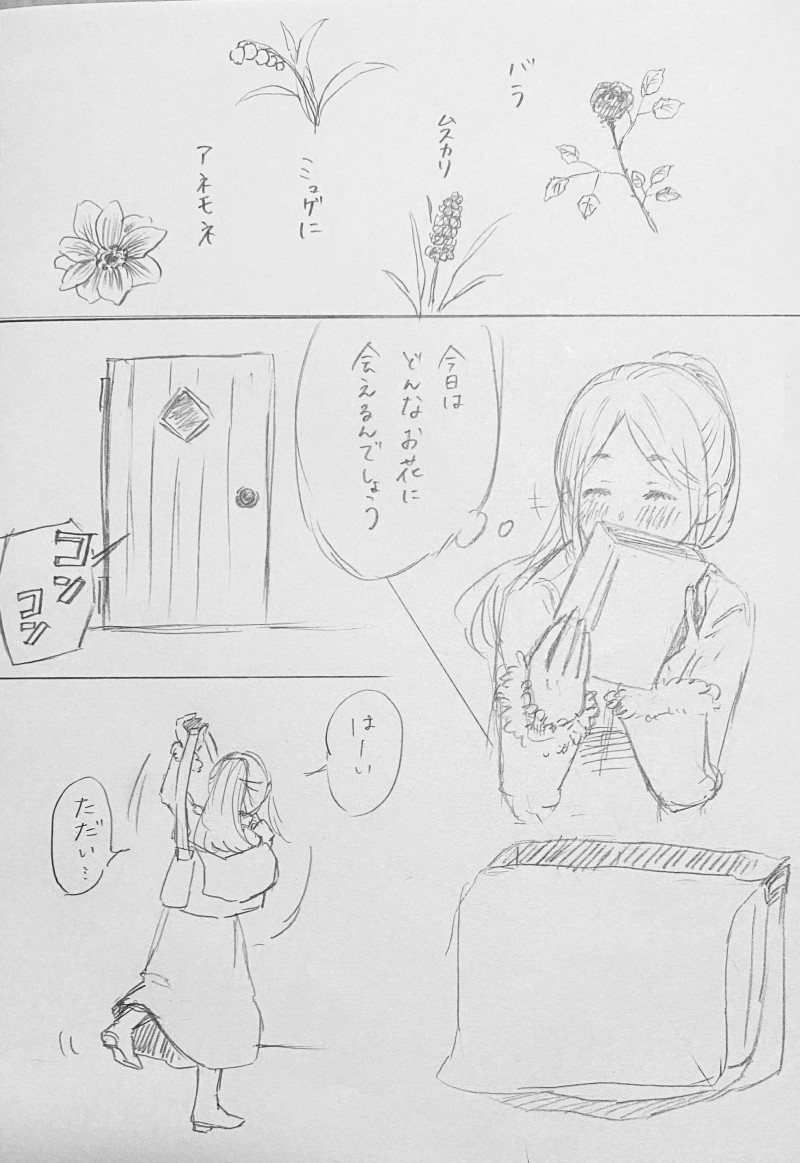 バラ
ムスカリ
ミュゲに
アネモネ
今日は
どんなお花に
会えるんでしょう
コンコン
はーい
ただい…